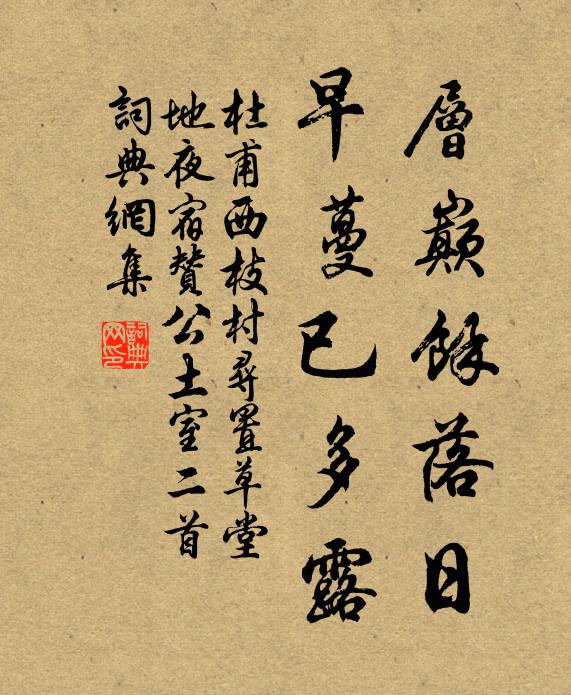 層巔餘落日
早蔓已多露
杜甫西枝村尋置草堂
地夜宿贊公土室二首
詞典網集
詞典网印